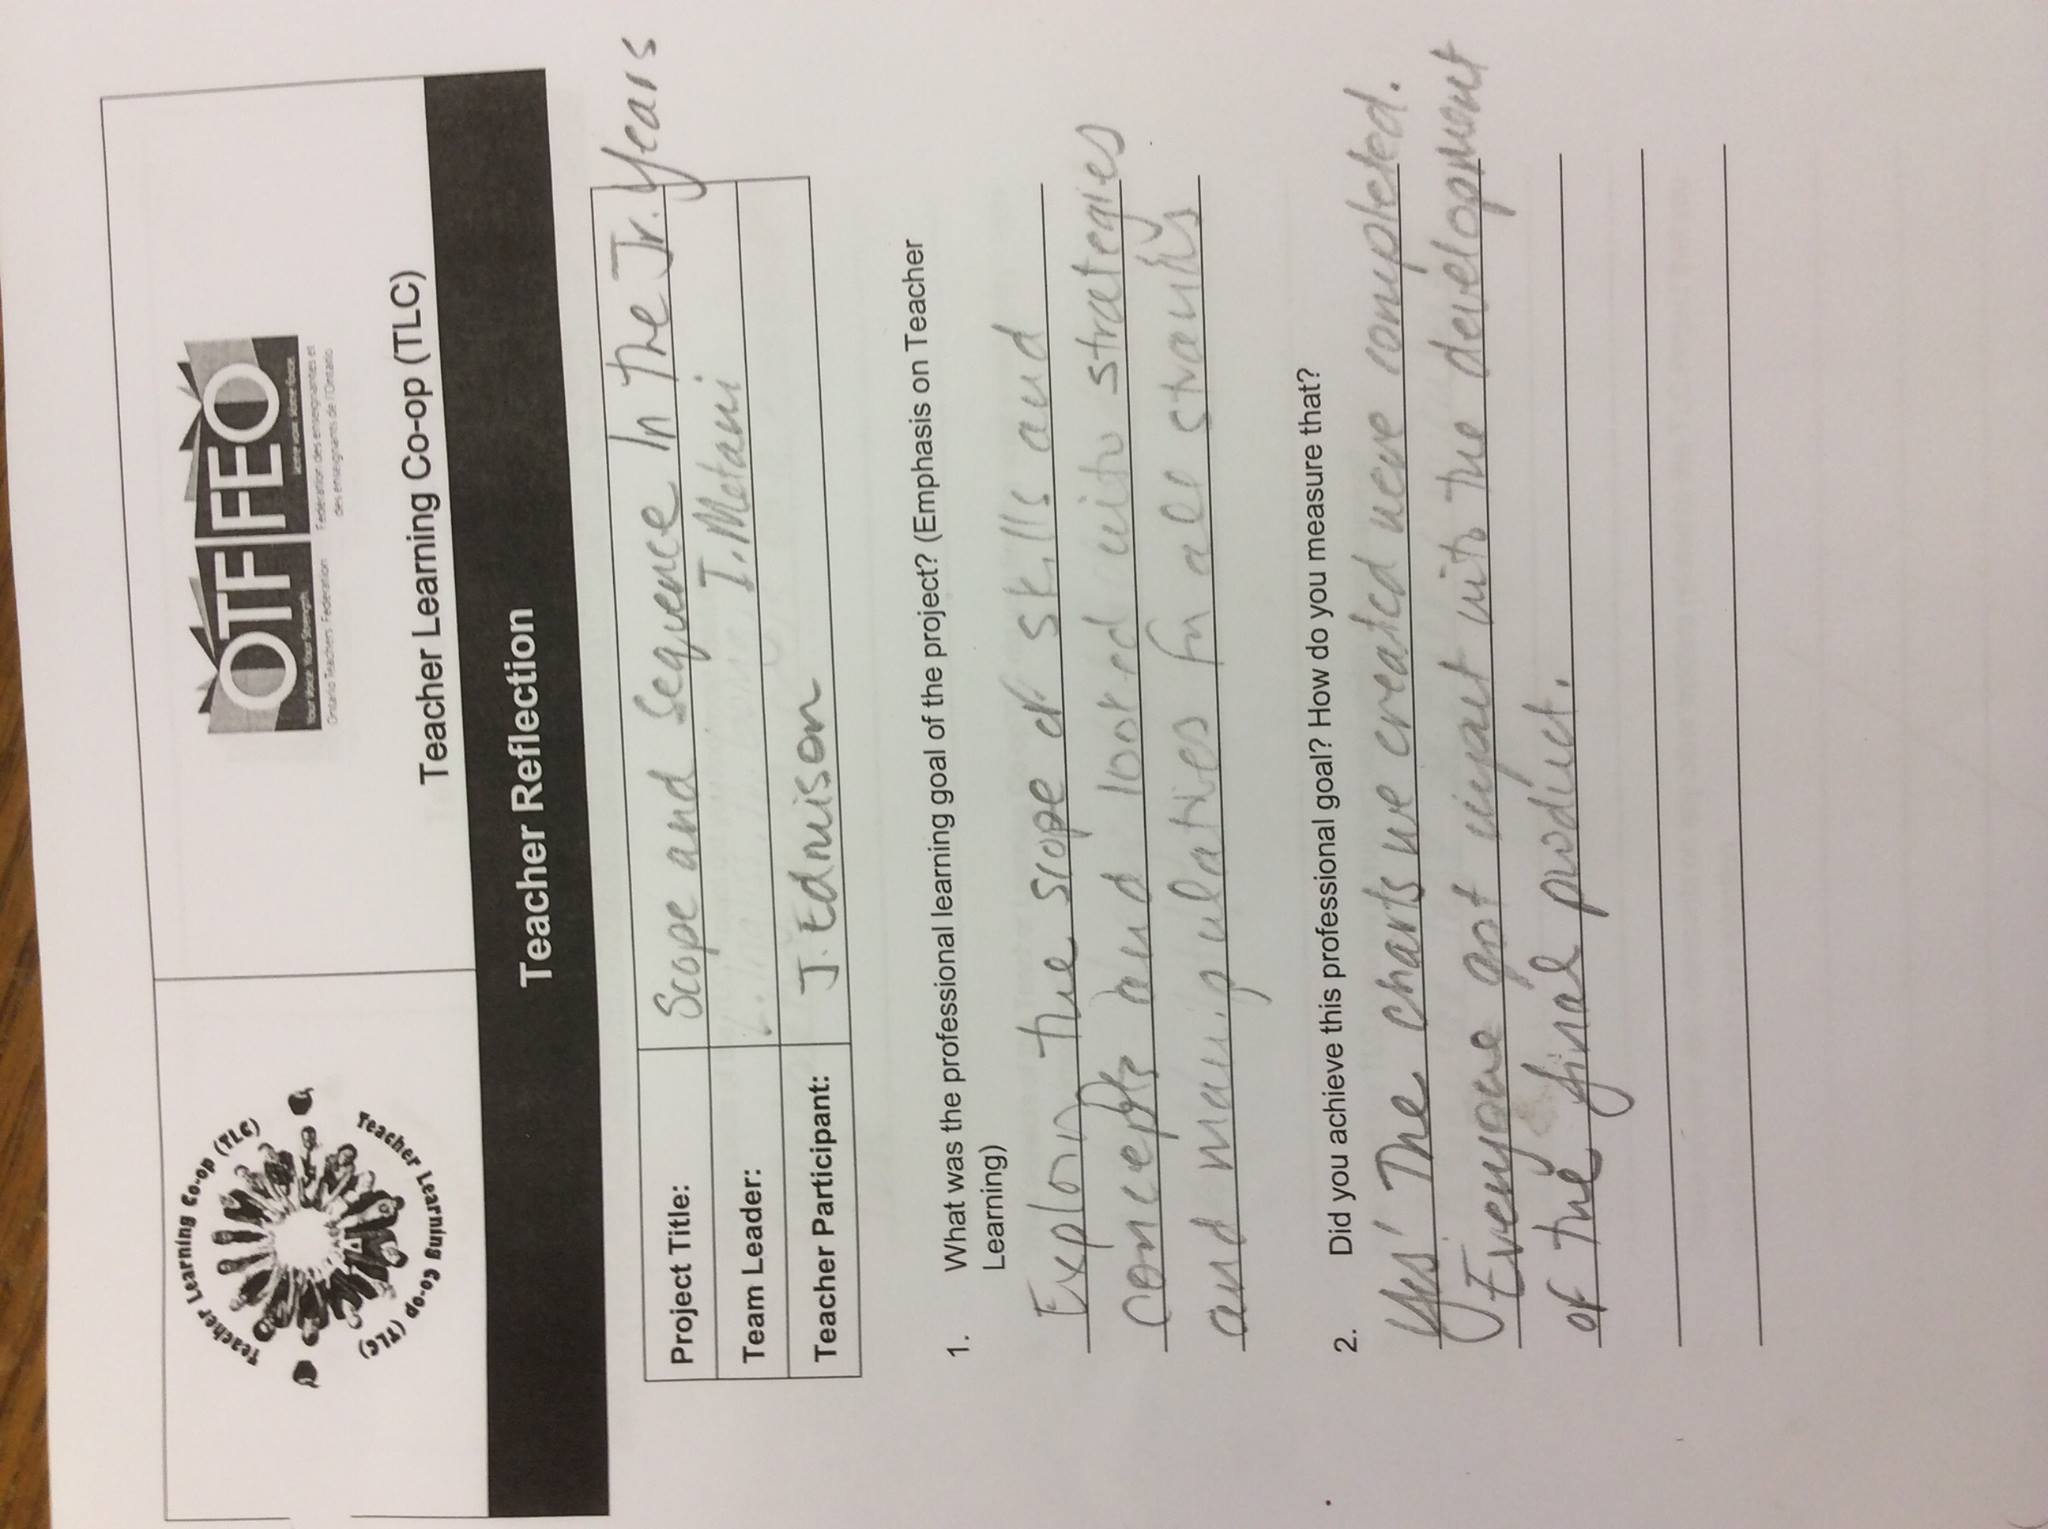 Teacher Learning Co-op (TLC)
Teacher Learning Co-op (TLC)
OTF FEO
Your Voice. Your Strength.
Votre voix. Votre force.
Ontario Teachers' Federation
Fédération des enseignantes et
des enseignants de l'Ontario
Teacher Learning Co-op (TLC)
Teacher Reflection
Project Title: Scope and Sequence In The Jr. Years
Team Leader: I. Metani
Teacher Participant: J. Edmison
1. What was the professional learning goal of the project? (Emphasis on Teacher
Learning)
the scope of skills and
concepts and looked into strategies
and manipulatives for all strands
2. Did you achieve this professional goal? How do you measure that?
Yes! The charts we created were completed.
Everyone got input into the development
of the final product.